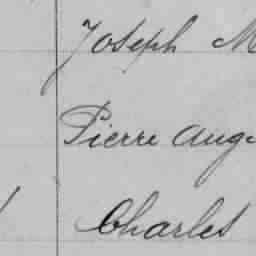 Joseph M
Pierre Aug
Charles